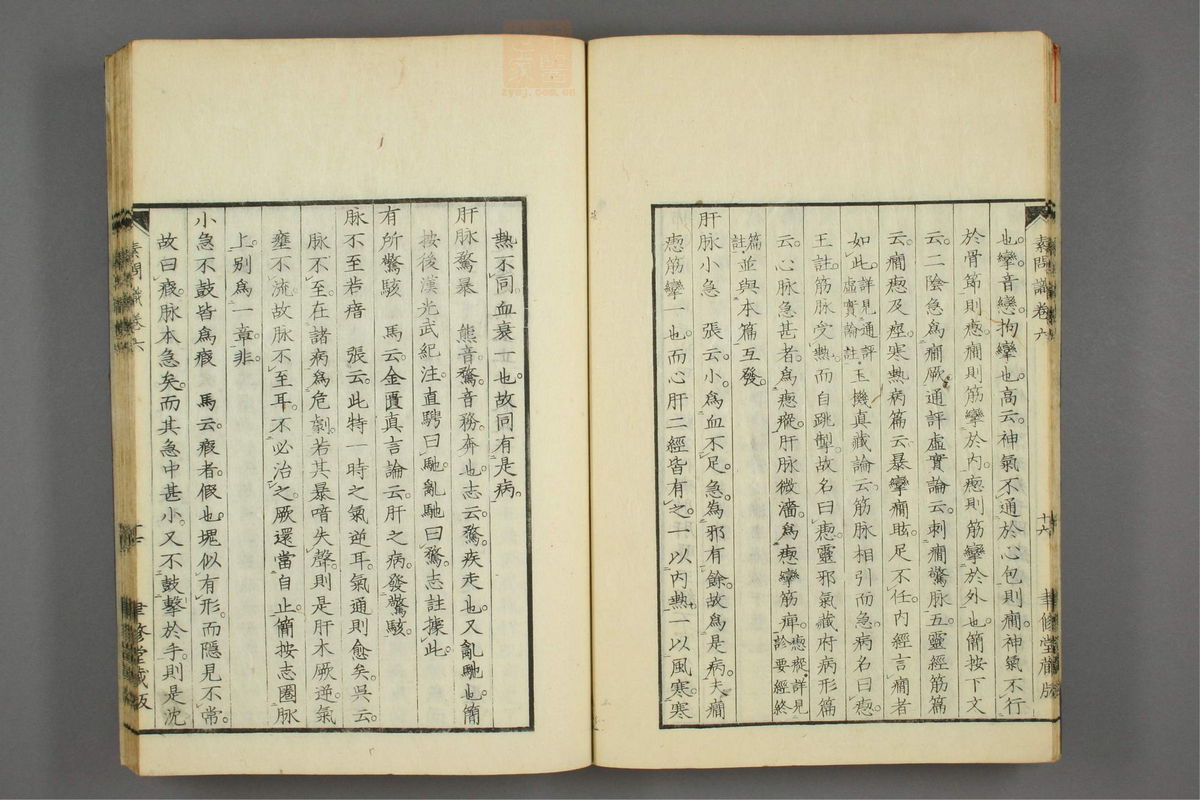 素問識卷六
十六
聿修堂藏版
也。攣音戀。拘攣也。高云。神氣不通於心包則癎。神氣不行
於骨節則瘛。癎則筋攣於內。瘛則筋攣於外也。簡按下文
云。二陰急爲癎厥。通評虛實論云。刺癎驚脉五。靈經筋篇
云。癎瘛及痙。寒熱病篇云。暴攣癎眩。足不任。內經言癎者
如此。詳見通評虛實論註玉機眞藏論云。筋脉相引而急。病名曰瘛。
王註。筋脉受熱而自跳掣。故名曰瘛。靈邪氣藏府病形篇
云。心脉急甚者。爲瘛瘲。肝脉微濇。爲瘛攣筋痺。瘛瘲詳見診要經終
篇註並與本篇互發。
肝脉小急　張云。小爲血不足。急爲邪有餘。故爲是病。夫癎
瘛筋攣一也。而心肝二經皆有之。一以內熱。一以風寒。寒
熱不同。血衰一也。故同有是病。
肝脉騖暴　熊音。騖音務。奔也。志云。騖疾走也。又亂馳也。簡
按後漢光武紀注。直騁曰馳。亂馳曰騖。志註據此。
有所驚駭　馬云。金匱眞言論云。肝之病。發驚駭。
脉不至若瘖　張云。此特一時之氣逆耳。氣通則愈矣。吳云。
脉不至。在諸病爲危劇。若其暴喑失聲。則是肝木厥逆。氣
壅不流。故脉不至耳。不必治之。厥還當自止。簡按志圈脉
上。別爲一章。非。
小急不鼓皆爲瘕　馬云。瘕者。假也。塊似有形。而隱見不常。
故曰瘕。脉本急矣。而其急中甚小。又不鼓擊於手。則是沈
素問識卷六
聿修堂藏版